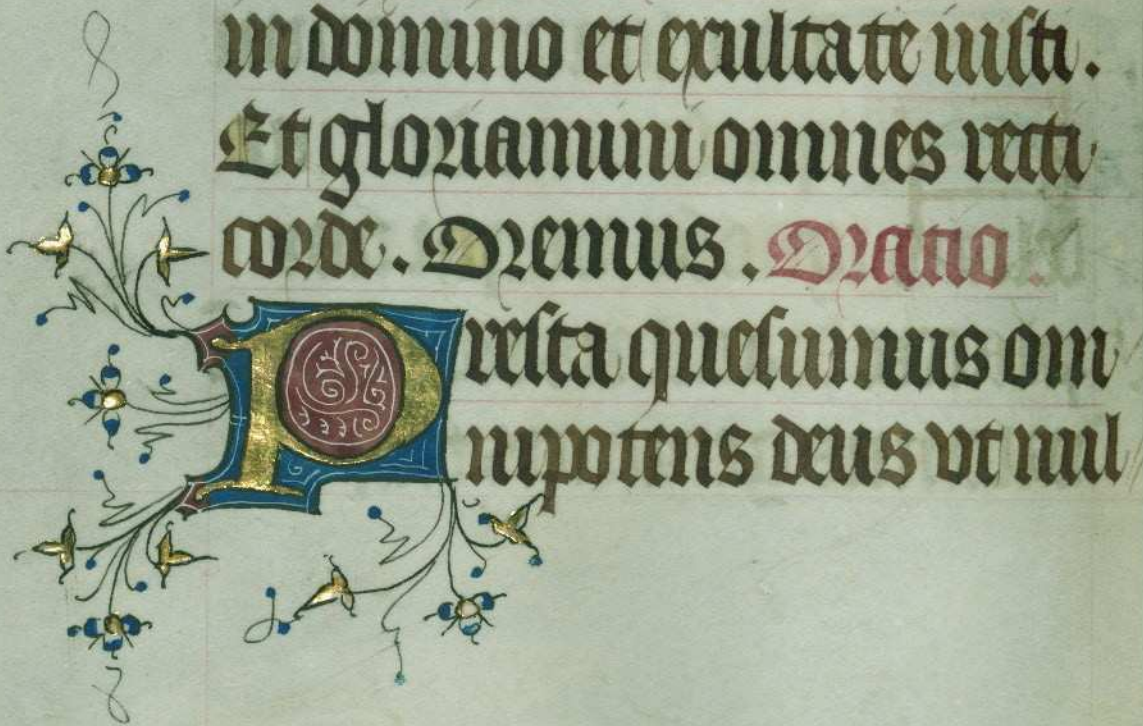 in domino et exultate iusti.
Et gloriamini omnes recti
corde. Oremus. Oratio.
Presta quesumus om
nipotens deus vt nul